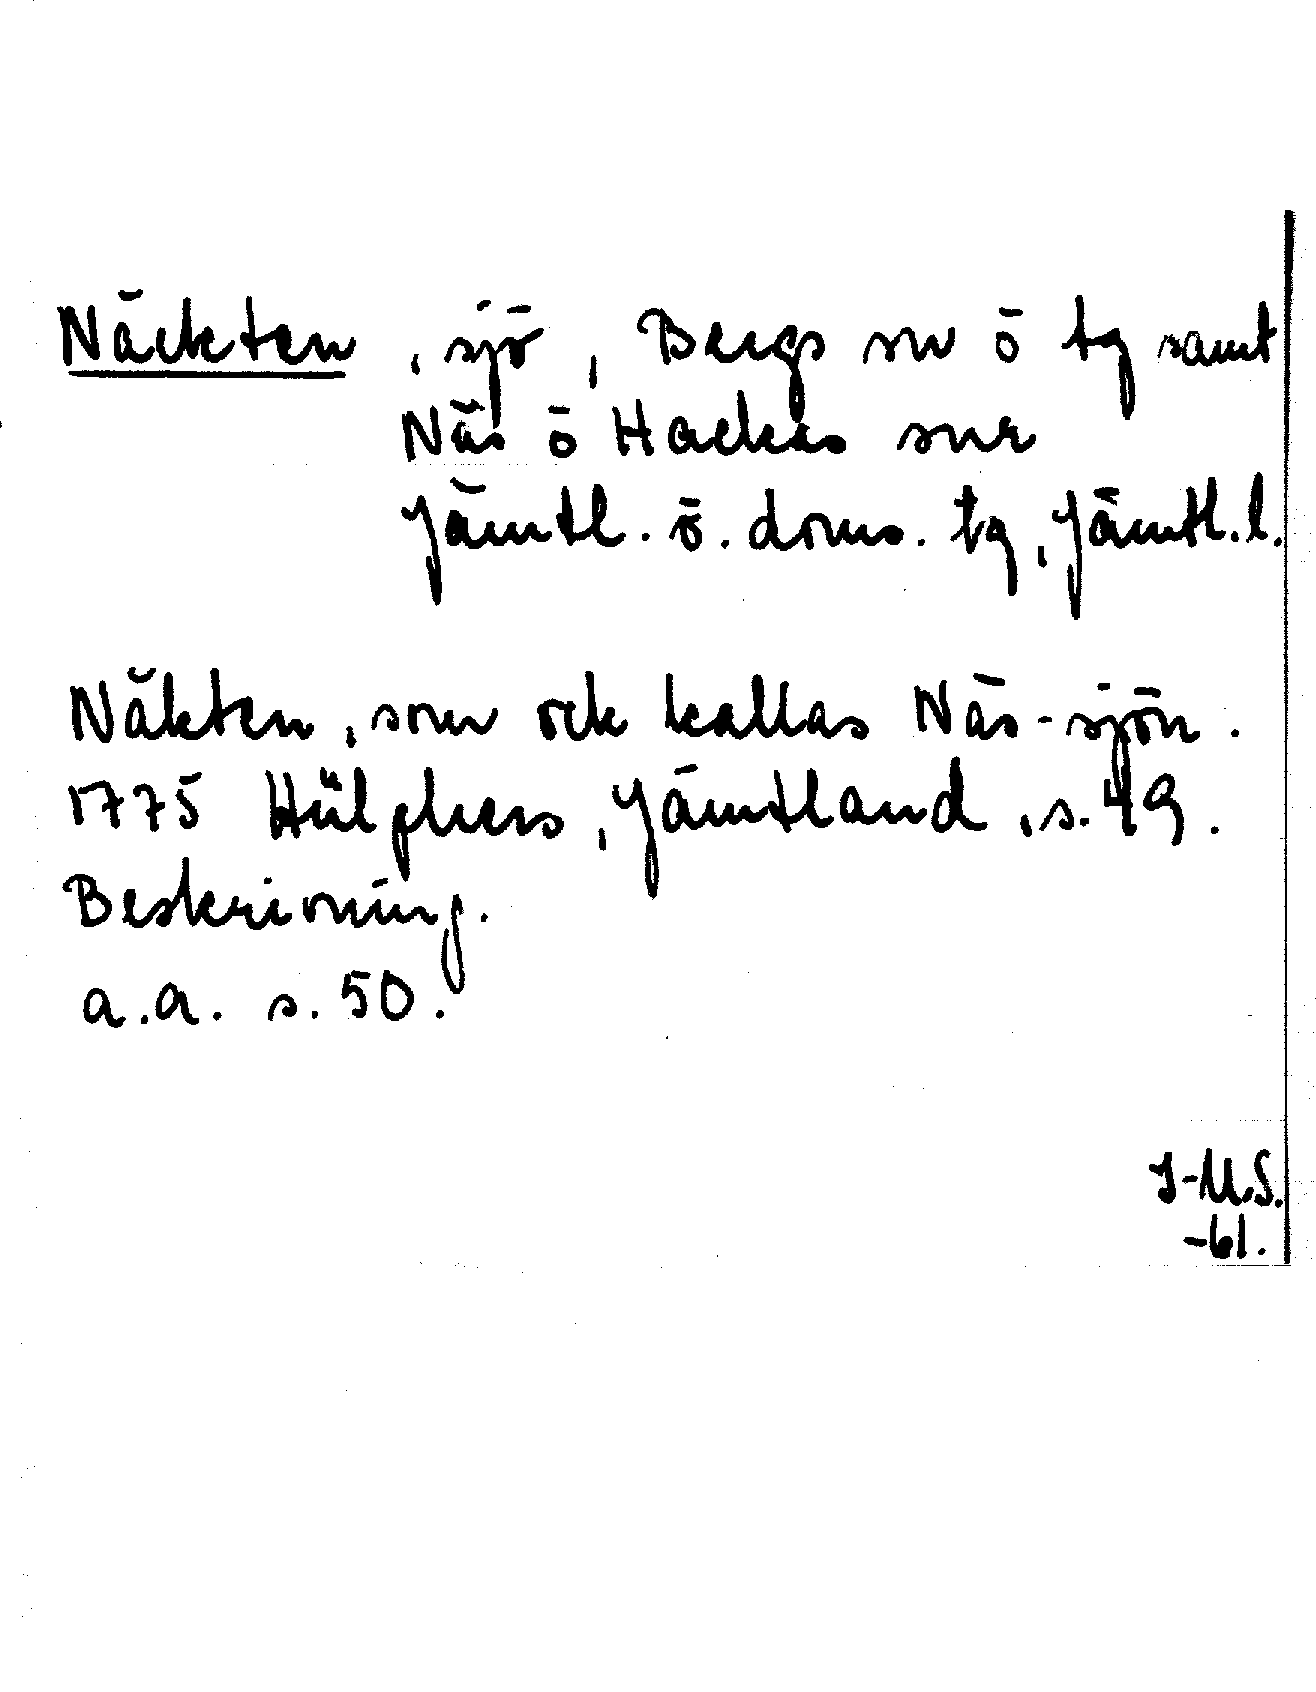 Näckten, sjö, Bergs sn ö tg samt
Näs ö Hackås snr
Jämtl. ö. doms. tg, Jämtl. l.
Näkten, som ock kallas Näs-sjön.
1775 Hülphers, Jämtland, s. 49.
Beskrivning.
a.a. s. 50.
I-M.S.
-61.